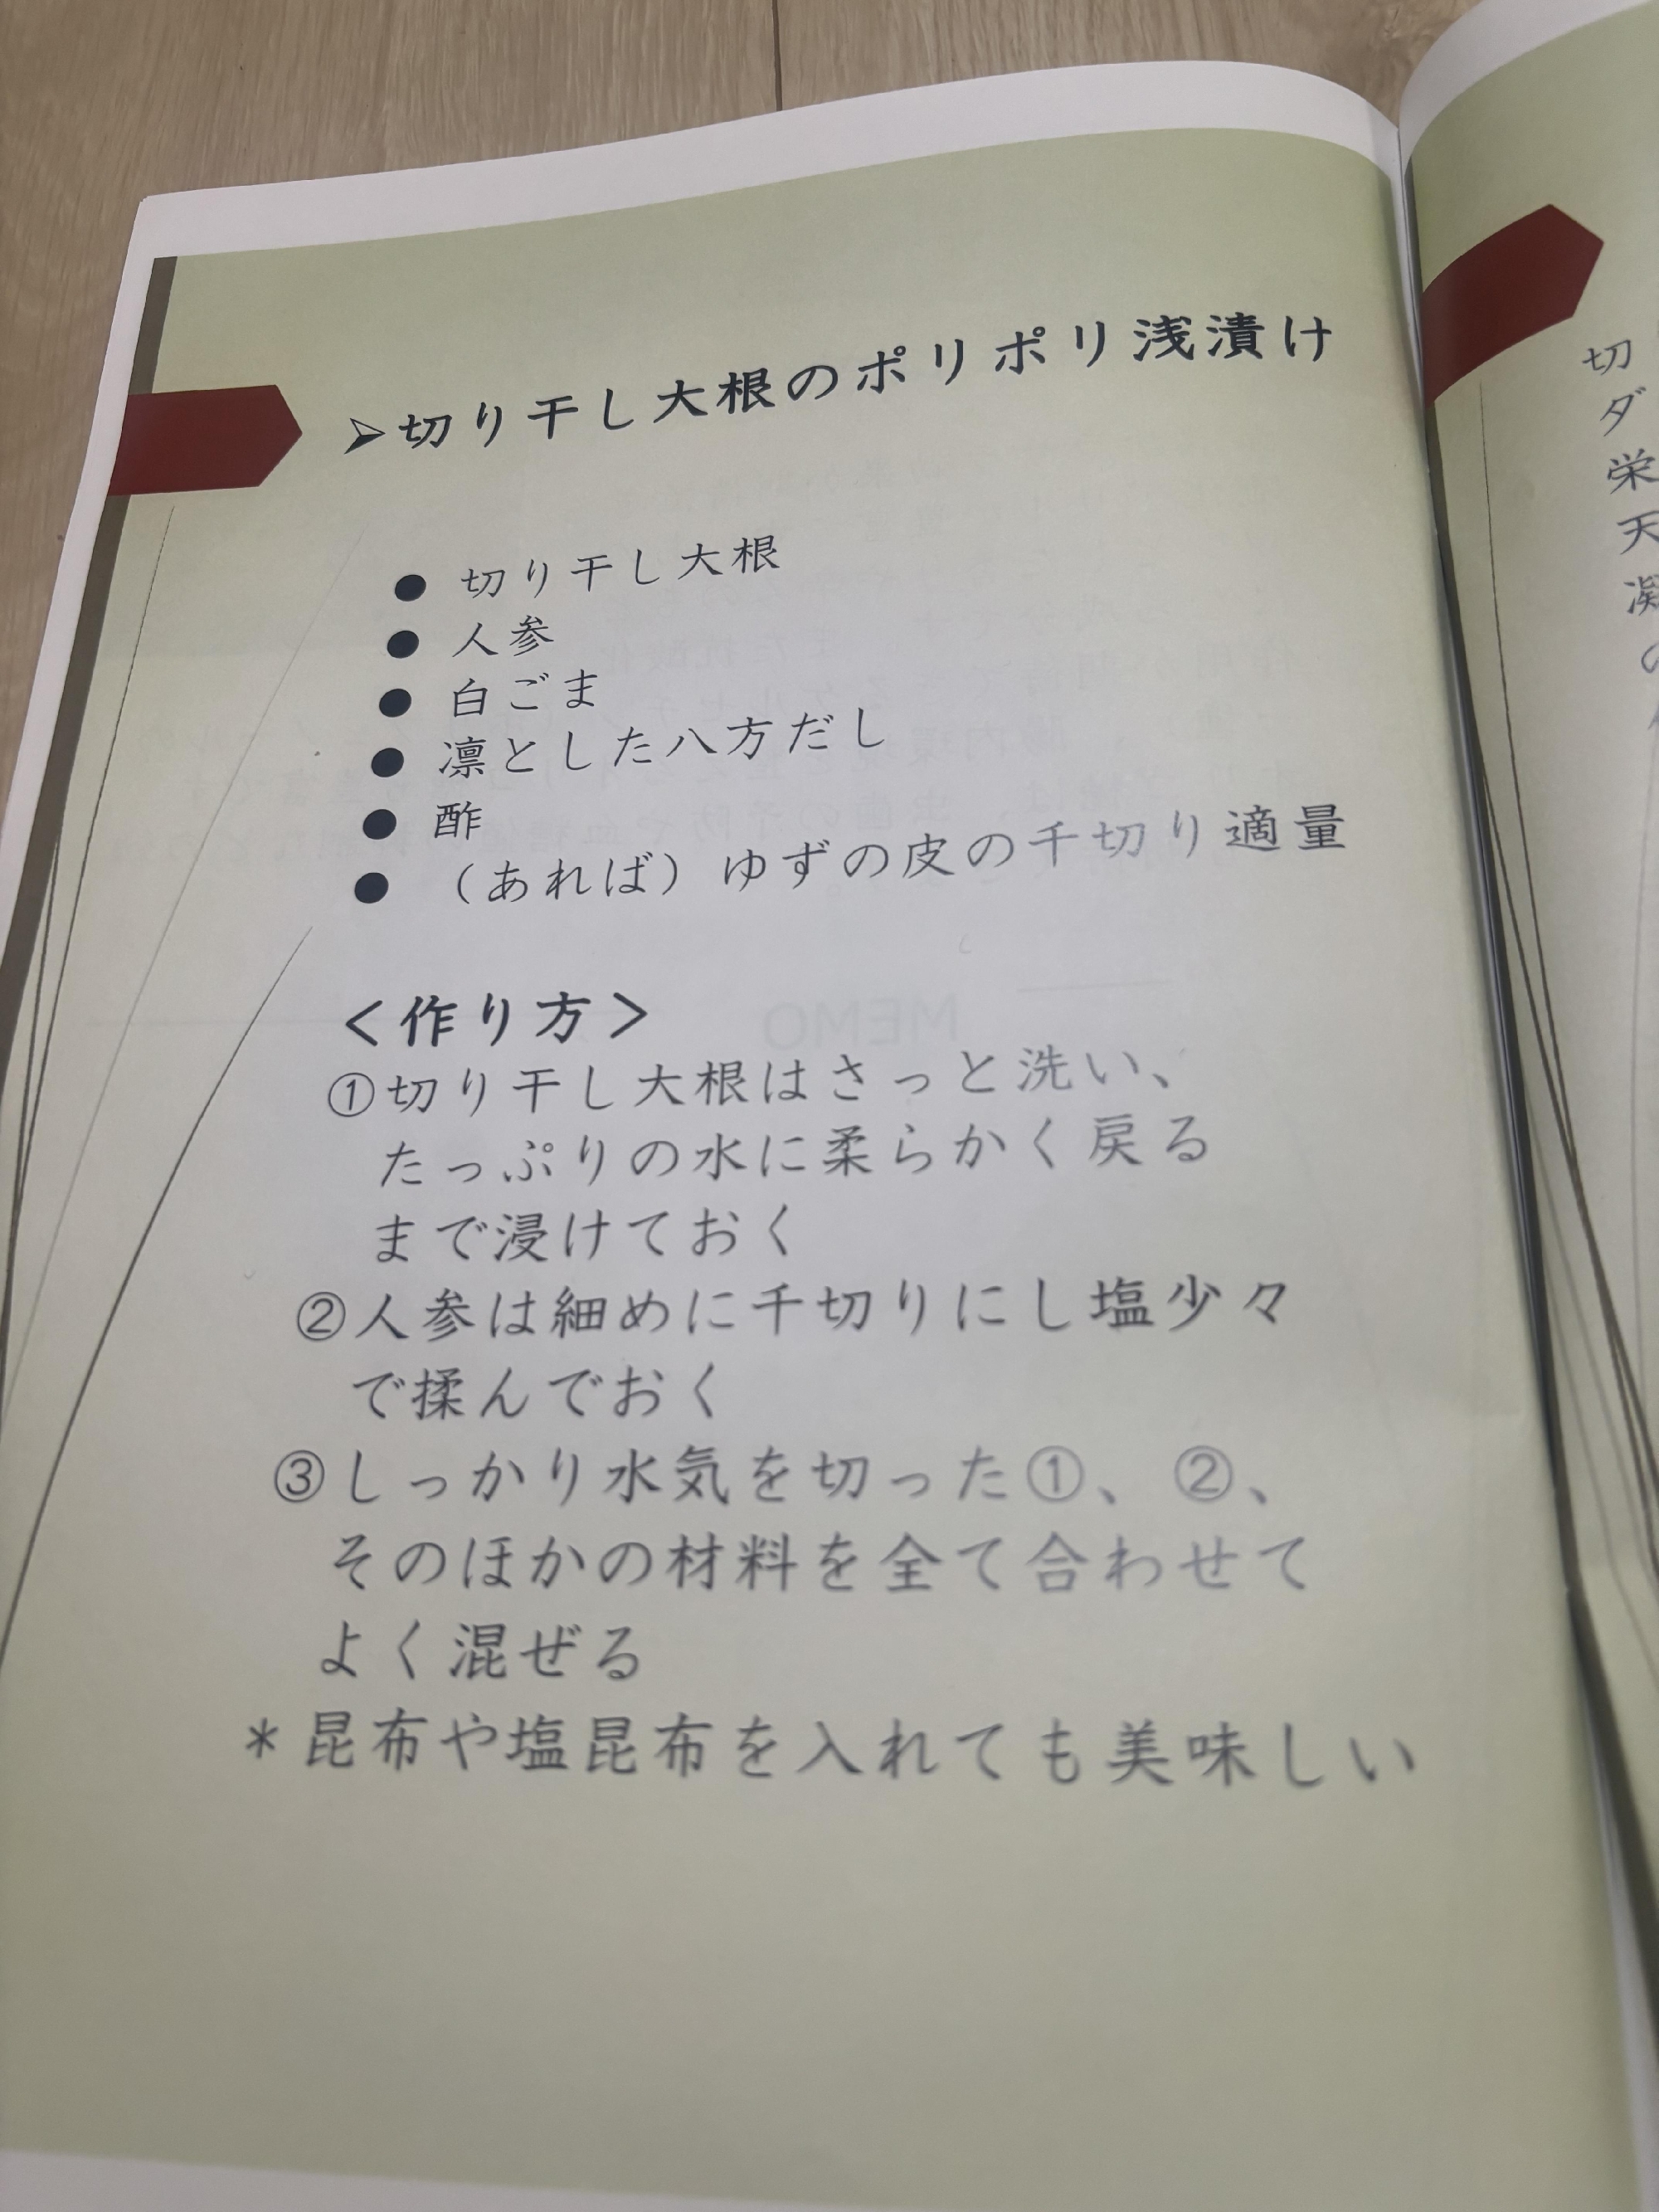 ➢切り干し大根のポリポリ浅漬け
● 切り干し大根
● 人参
● 白ごま
● 凛とした八方だし
● 酢
● （あれば）ゆずの皮の千切り適量
＜作り方＞
①切り干し大根はさっと洗い、
たっぷりの水に柔らかく戻る
まで浸けておく
②人参は細めに千切りにし塩少々
で揉んでおく
③しっかり水気を切った①、②、
そのほかの材料を全て合わせて
よく混ぜる
＊昆布や塩昆布を入れても美味しい
切
ダ
栄
天